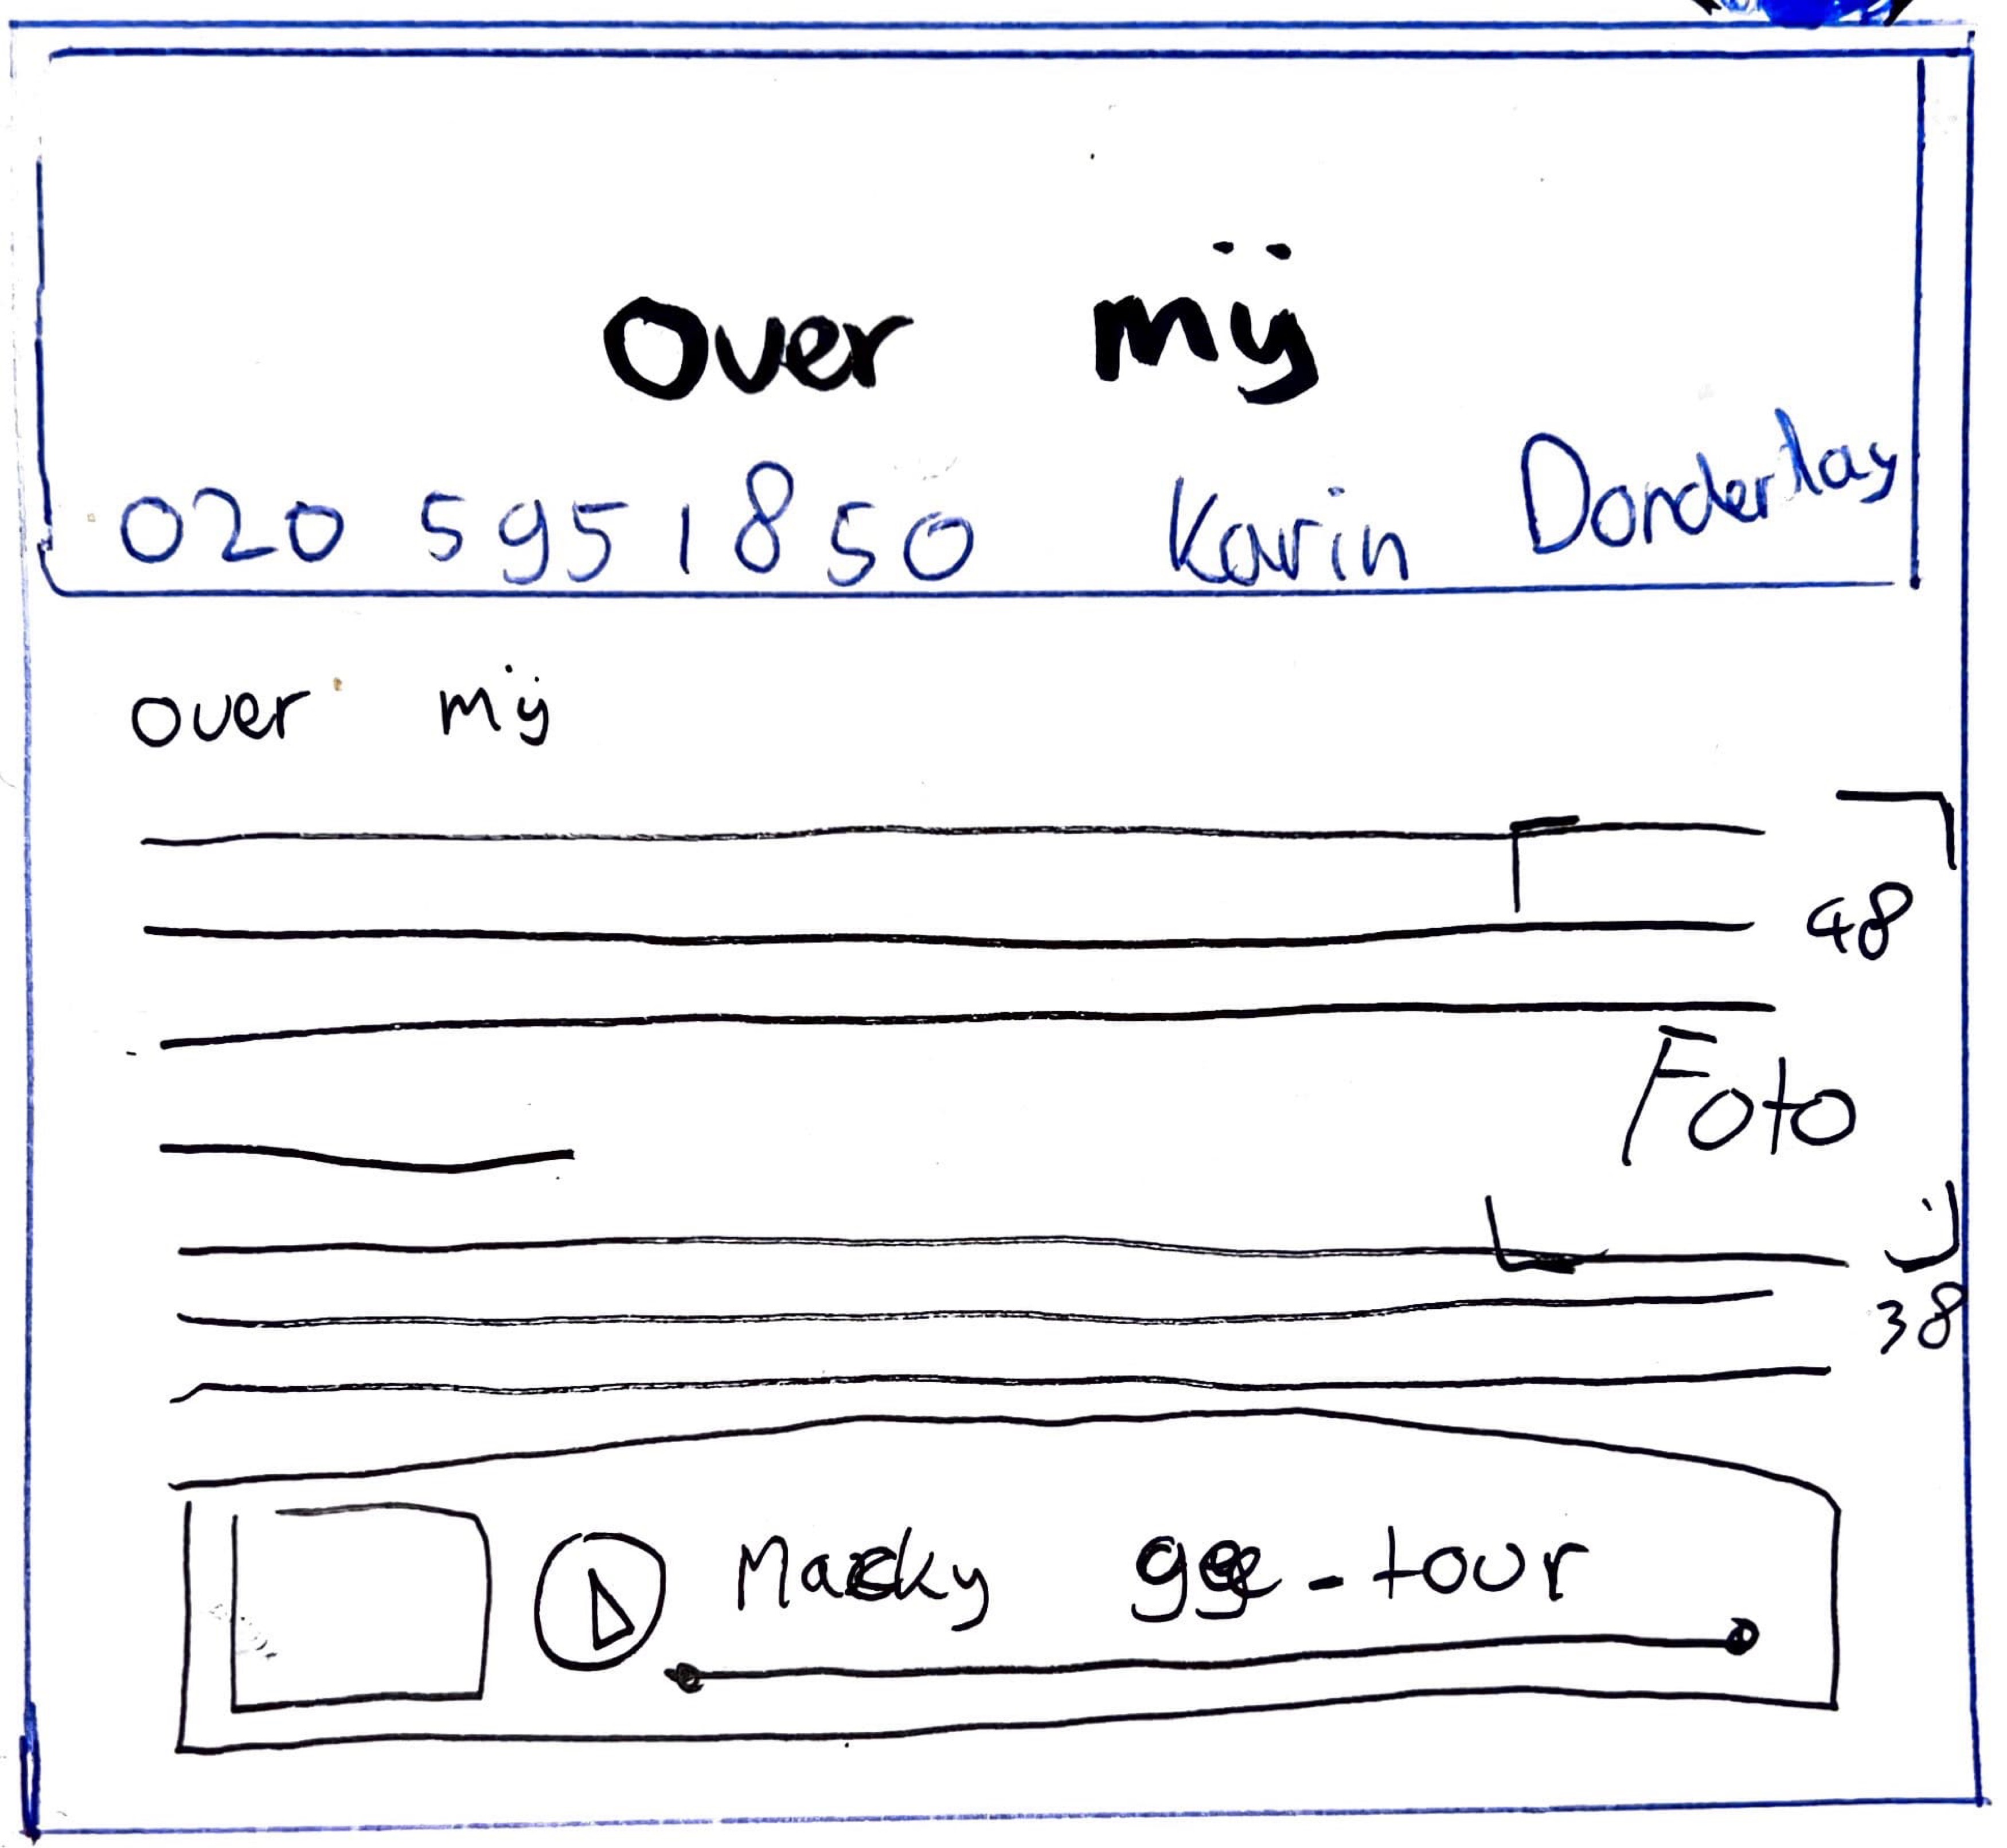 over mij
020 5951850 Karin Donderdag
over mij
48
Foto
38
Macky gee - tour